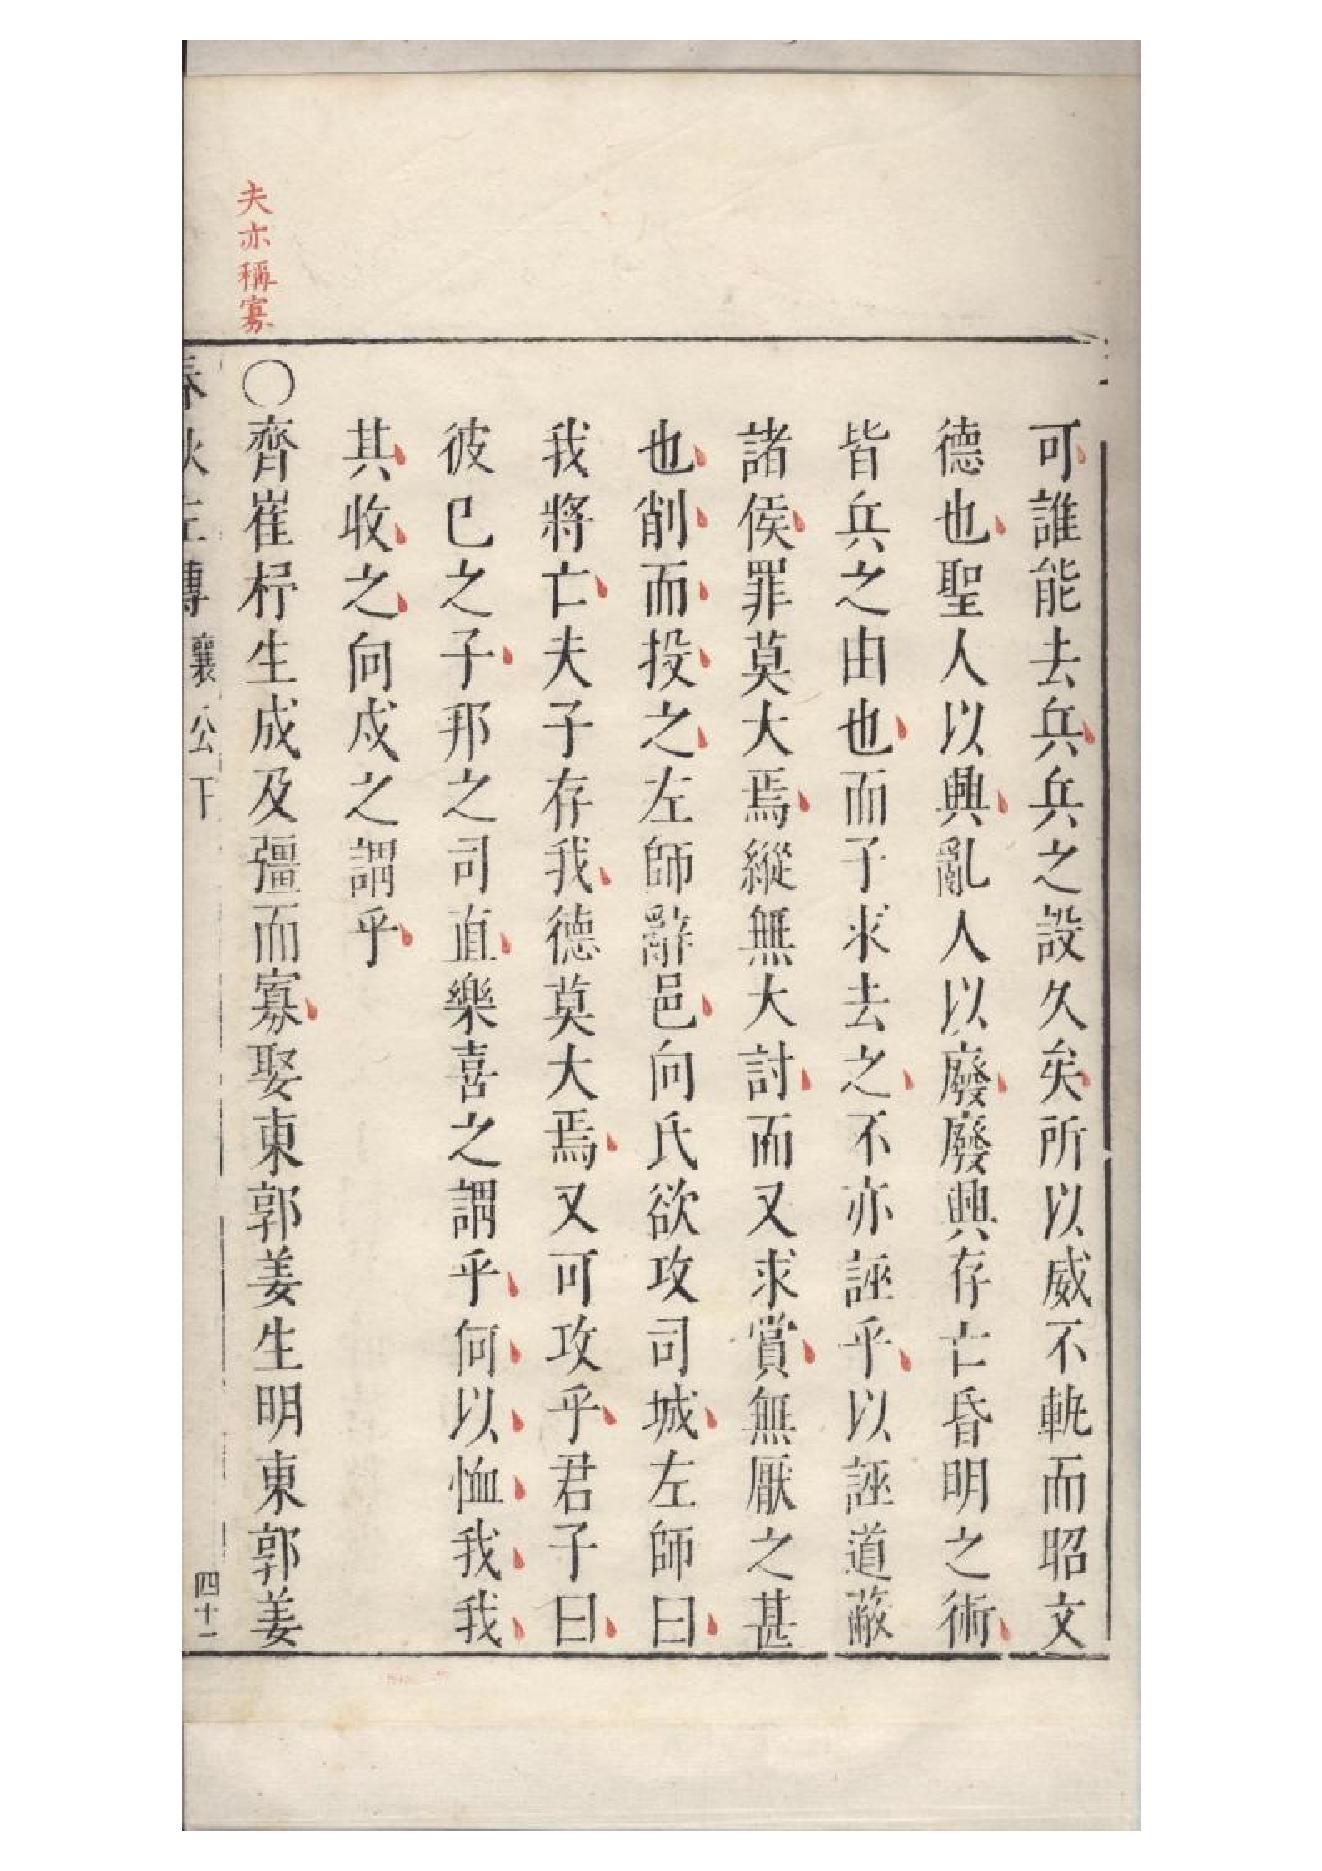 可誰能去兵兵之設久矣所以威不軌而昭文
德也聖人以興亂人以廢廢興存亡昏明之術
皆兵之由也而子求去之不亦誣乎以誣道蔽
諸侯罪莫大焉縱無大討而又求賞無厭之甚
也削而投之左師辭邑向氏欲攻司城左師曰
我將亡夫子存我德莫大焉又可攻乎君子曰
彼己之子邦之司直樂喜之謂乎何以恤我我
其收之向戍之謂乎
夫亦稱寡
〇齊崔杼生成及彊而寡娶東郭姜生明東郭姜
春秋左傳 襄公下 四十一